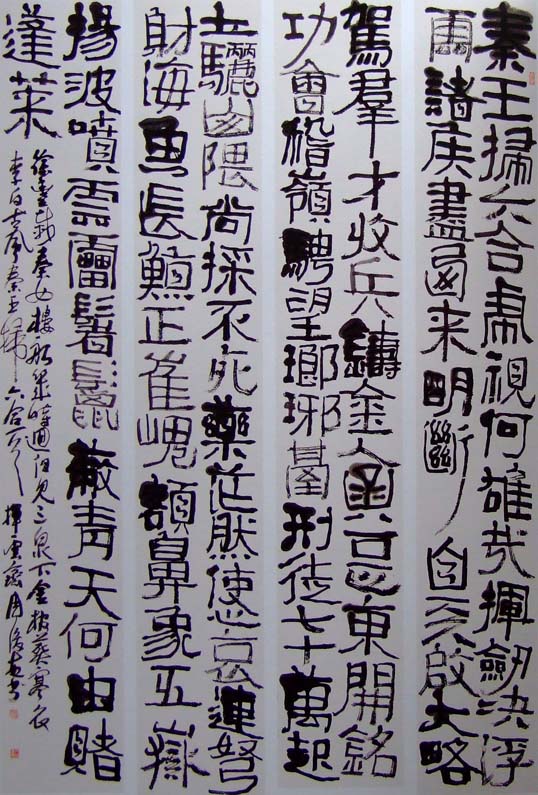 秦王掃六合虎視何雄哉揮劍決浮
雲諸侯盡西來明斷自天啟大略
駕羣才收兵鑄金人函谷正東開銘
功會稽嶺騁望瑯琊臺刑徒七十萬起
土驪山隈尚採不死藥茫然使心哀連弩
射海魚長鯨正崔嵬額鼻象五嶽
揚波噴雲雷鬐鬣蔽青天何由睹
蓬萊
徐巿載秦女樓船幾時迴但見三泉下金棺葬寒灰
李白古風秦王掃六合 揮雲齋周俊杰書